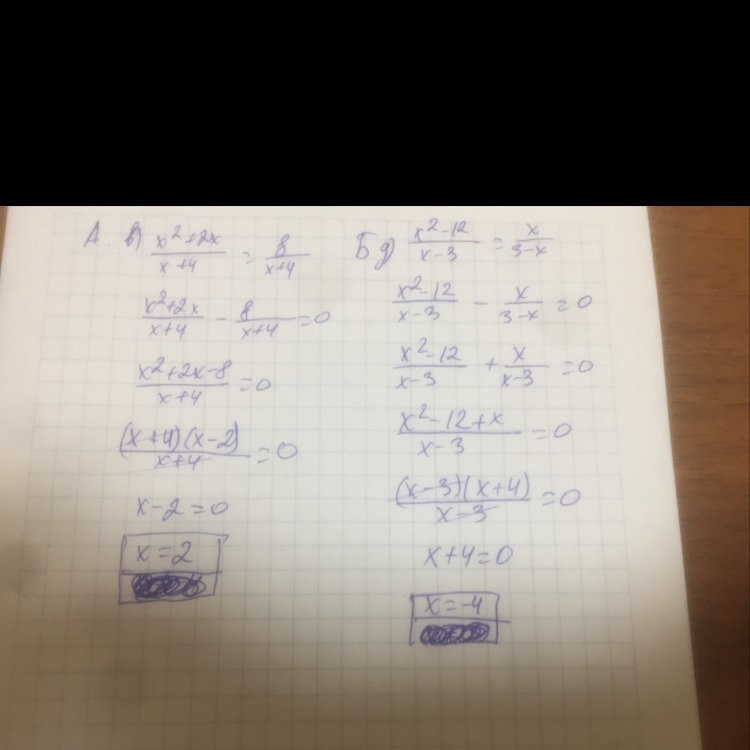 А. в) (x²+2x)/(x+4) = 8/(x+4)
(x²+2x)/(x+4) - 8/(x+4) = 0
(x²+2x-8)/(x+4) = 0
(x+4)(x-2)/(x+4) = 0
x-2=0
x=2
Б д) (x²-12)/(x-3) = x/(3-x)
(x²-12)/(x-3) - x/(3-x) = 0
(x²-12)/(x-3) + x/(x-3) = 0
(x²-12+x)/(x-3) = 0
(x-3)(x+4)/(x-3) = 0
x+4=0
x=-4